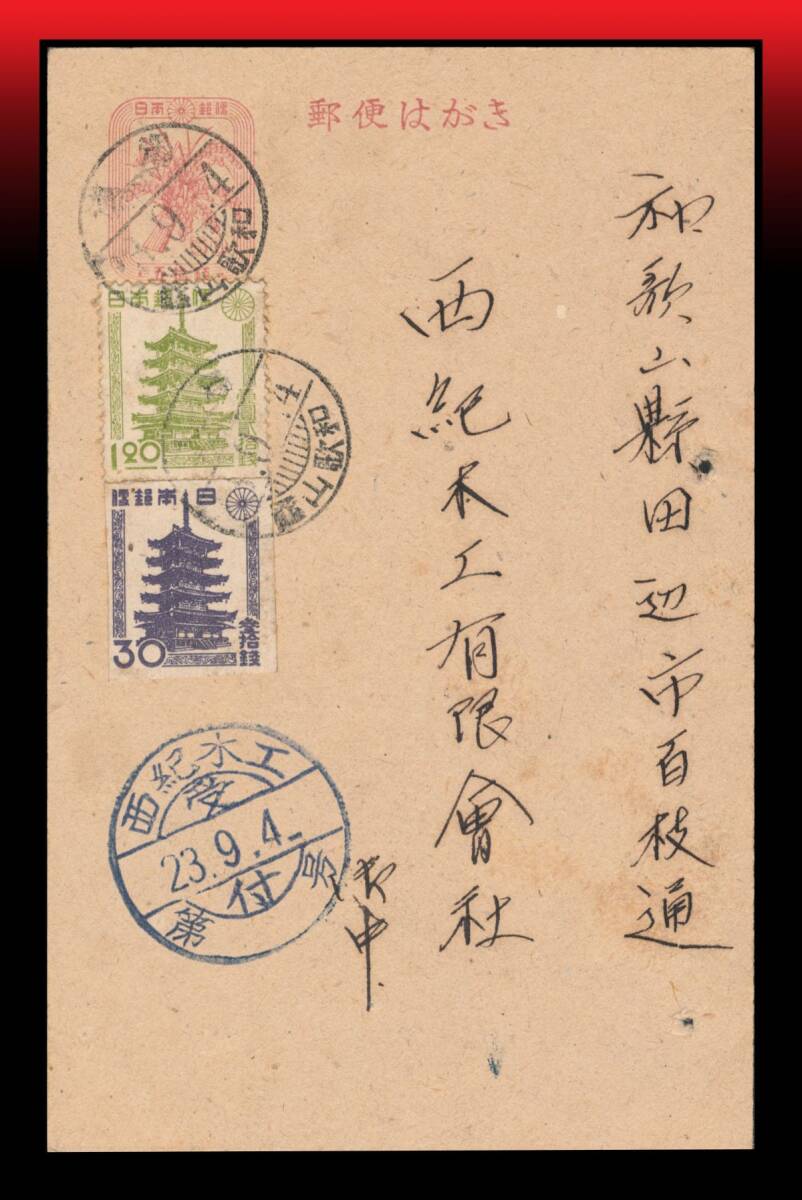 郵便はがき
日本郵便
五拾錢
日本郵便
1.20
日本郵便
30
參拾錢
和歌山
9.4
和歌山
4
和歌山縣田辺市百枝通
西紀木工有限會社
御中
西紀木工
受
23.9.4
付
第 号